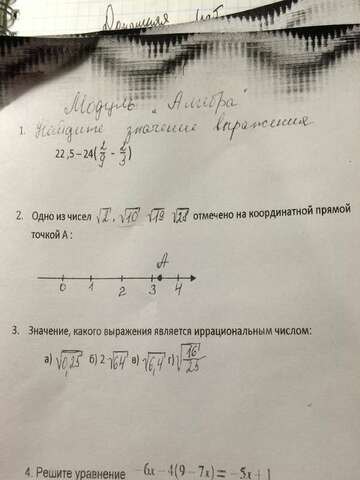 Домашняя
Модуль „Алгебра"
1. Найдите значение выражения
22,5 – 24(2/9 - 2/3)
2. Одно из чисел √2, √10 √19 √28 отмечено на координатной прямой
точкой А :
А
0 1 2 3 4
3. Значение, какого выражения является иррациональным числом:
а) √0,25 б) 2√64 в) √6,4 г) √16/25
4. Решите уравнение -6x - 4(9 - 7x) = -5x + 1